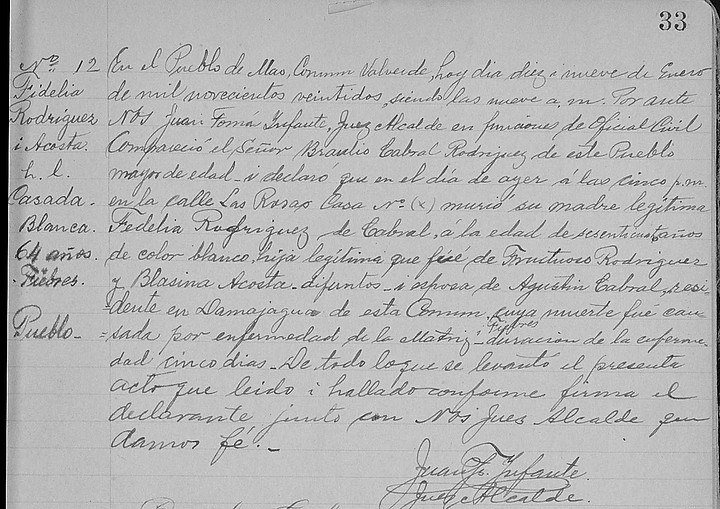 33
Nº 12
Fidelia
Rodriguez
i Acosta.
h. l.
Casada.
Blanca.
64 años.
Fiebres.
Pueblo
En el Pueblo de Mao, Comun Valverde, hoy dia diez i nueve de Enero
de mil novecientos veintidos, siendo las nueve a, m. Por ante
Nos Juan Tomás Infante, Juez Alcalde en funciones de Oficial Civil
Compareció el Señor Braulio Cabral Rodriguez de este Pueblo
mayor de edad i declaro que en el dia de ayer á las cinco p.m.
en la calle Las Rosas Casa Nº (x) murió su madre legítima
Fidelia Rodriguez de Cabral, á la edad de años
de color blanco, hija legítima que fué de Fructuoso Rodriguez
y Blasina Acosta difuntos i esposa de Agustin Cabral, resi-
dente en Damajagua de esta Comun, cuya muerte fué cau-
=sada por enfermedad de la Matriz Fiebres duracion de la enferme-
dad cinco dias. De todo lo que se levantó el presenta
acto que leido i hallado conforme firma el
declarante junto con Nos Jues Alcalde que
damos fé.
Juan Infante.
Juez Alcalde.